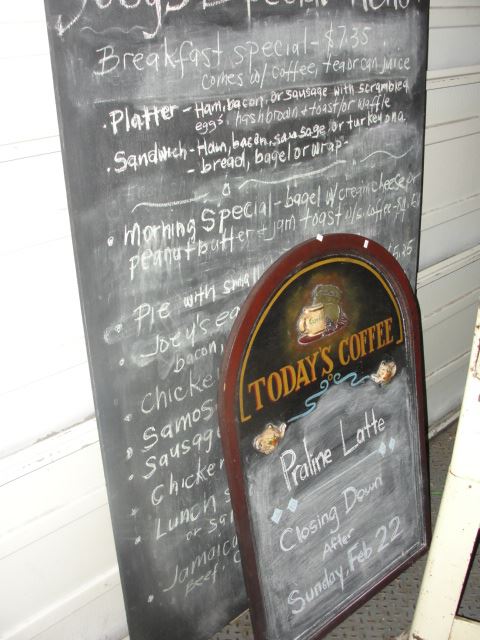 Joey's Special Menu
Breakfast special - $7.35
comes w/ coffee, tea or can juice
• Platter - Ham, bacon, or sausage with scrambled
eggs, hashbrown + toast or waffle
• Sandwich - Ham, bacon, sausage, or turkey on a
- bread, bagel or wrap -
• Morning Special - bagel w/ cream cheese or
peanut butter + jam toast w/s coffee
• Pie with small
5.35
• Joey's
bacon,
• Chicke
• Samos
• Sausag
• Chicken
• Lunch s
or
• Jamaica
Beef
TODAY'S COFFEE
Praline Latte
Closing Down
After
Sunday, Feb 22